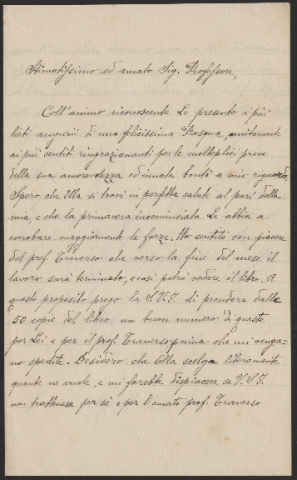 Stimatissimo ed amato Sig. Professore,
Coll'animo riconoscente Le presento i più
lieti augurii di una felicissima Pasqua, unitamente
ai più sentiti ringraziamenti per le molteplici prove
della sua amorevolezza ed innata bontà a mio riguardo.
Spero che Ella si trovi in perfetta salute al pari della
mia e che la primavera incominciata Le abbia a
corrobare maggiormente le forze. Ho sentito con piacere
dal prof. Traverso che verso la fine del mese il
lavoro sarà terminato, e così potrò vedere il libro. A
questo proposito prego la S.V.I. di prendere dalle
50 copie del libro un buon numero di queste
per Lei e per il prof. Traverso prima che mi venga-
no spedite. Desidero che Ella scelga liberamente
quante ne vuole e mi farebbe dispiacere se V.S.I.
non trattenesse per sé e per l'amato prof. Traverso